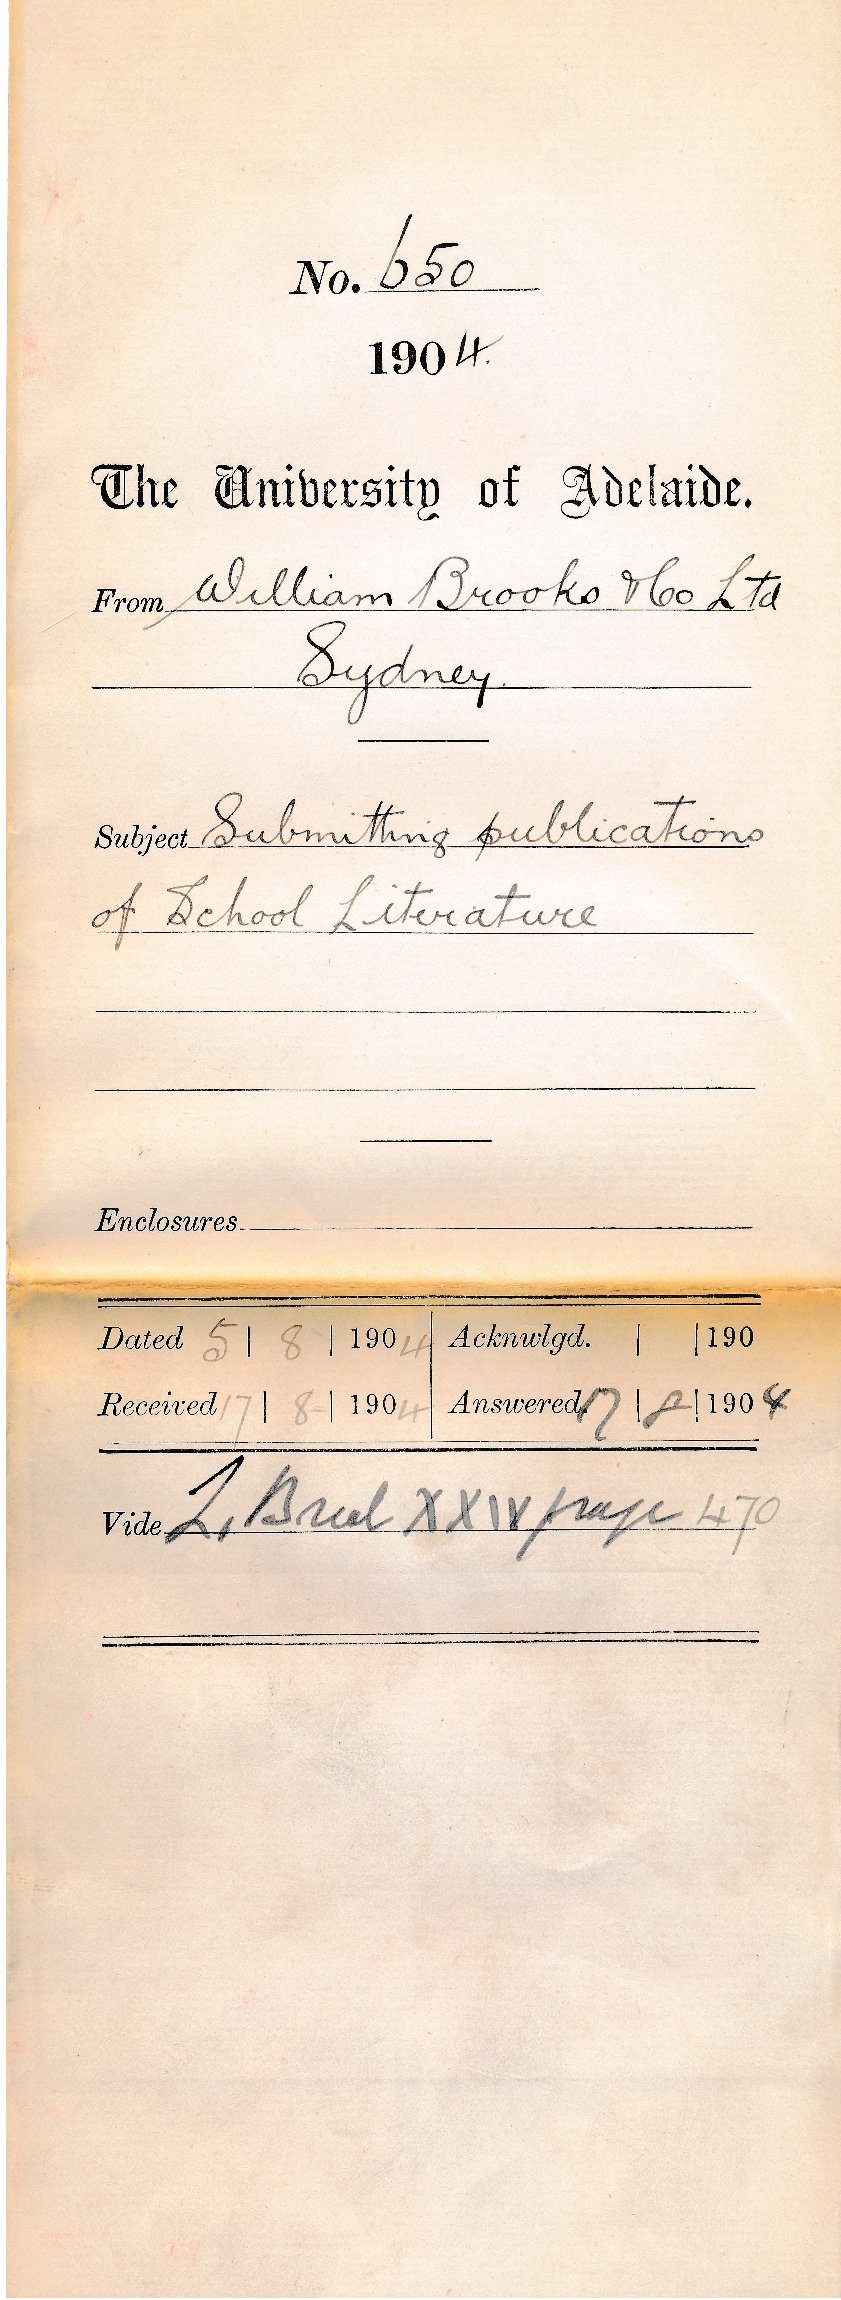 No. 650
1904.
The University of Adelaide.
From William Brooks & Co Ltd
Sydney.
Subject Submitting publications
of School Literature
Enclosures
Dated 5 | 8 | 1904 Acknwlgd. | | 190
Received 17 | 8 | 1904 Answered 17 | 8 | 1904
Vide L. XXIV page 470